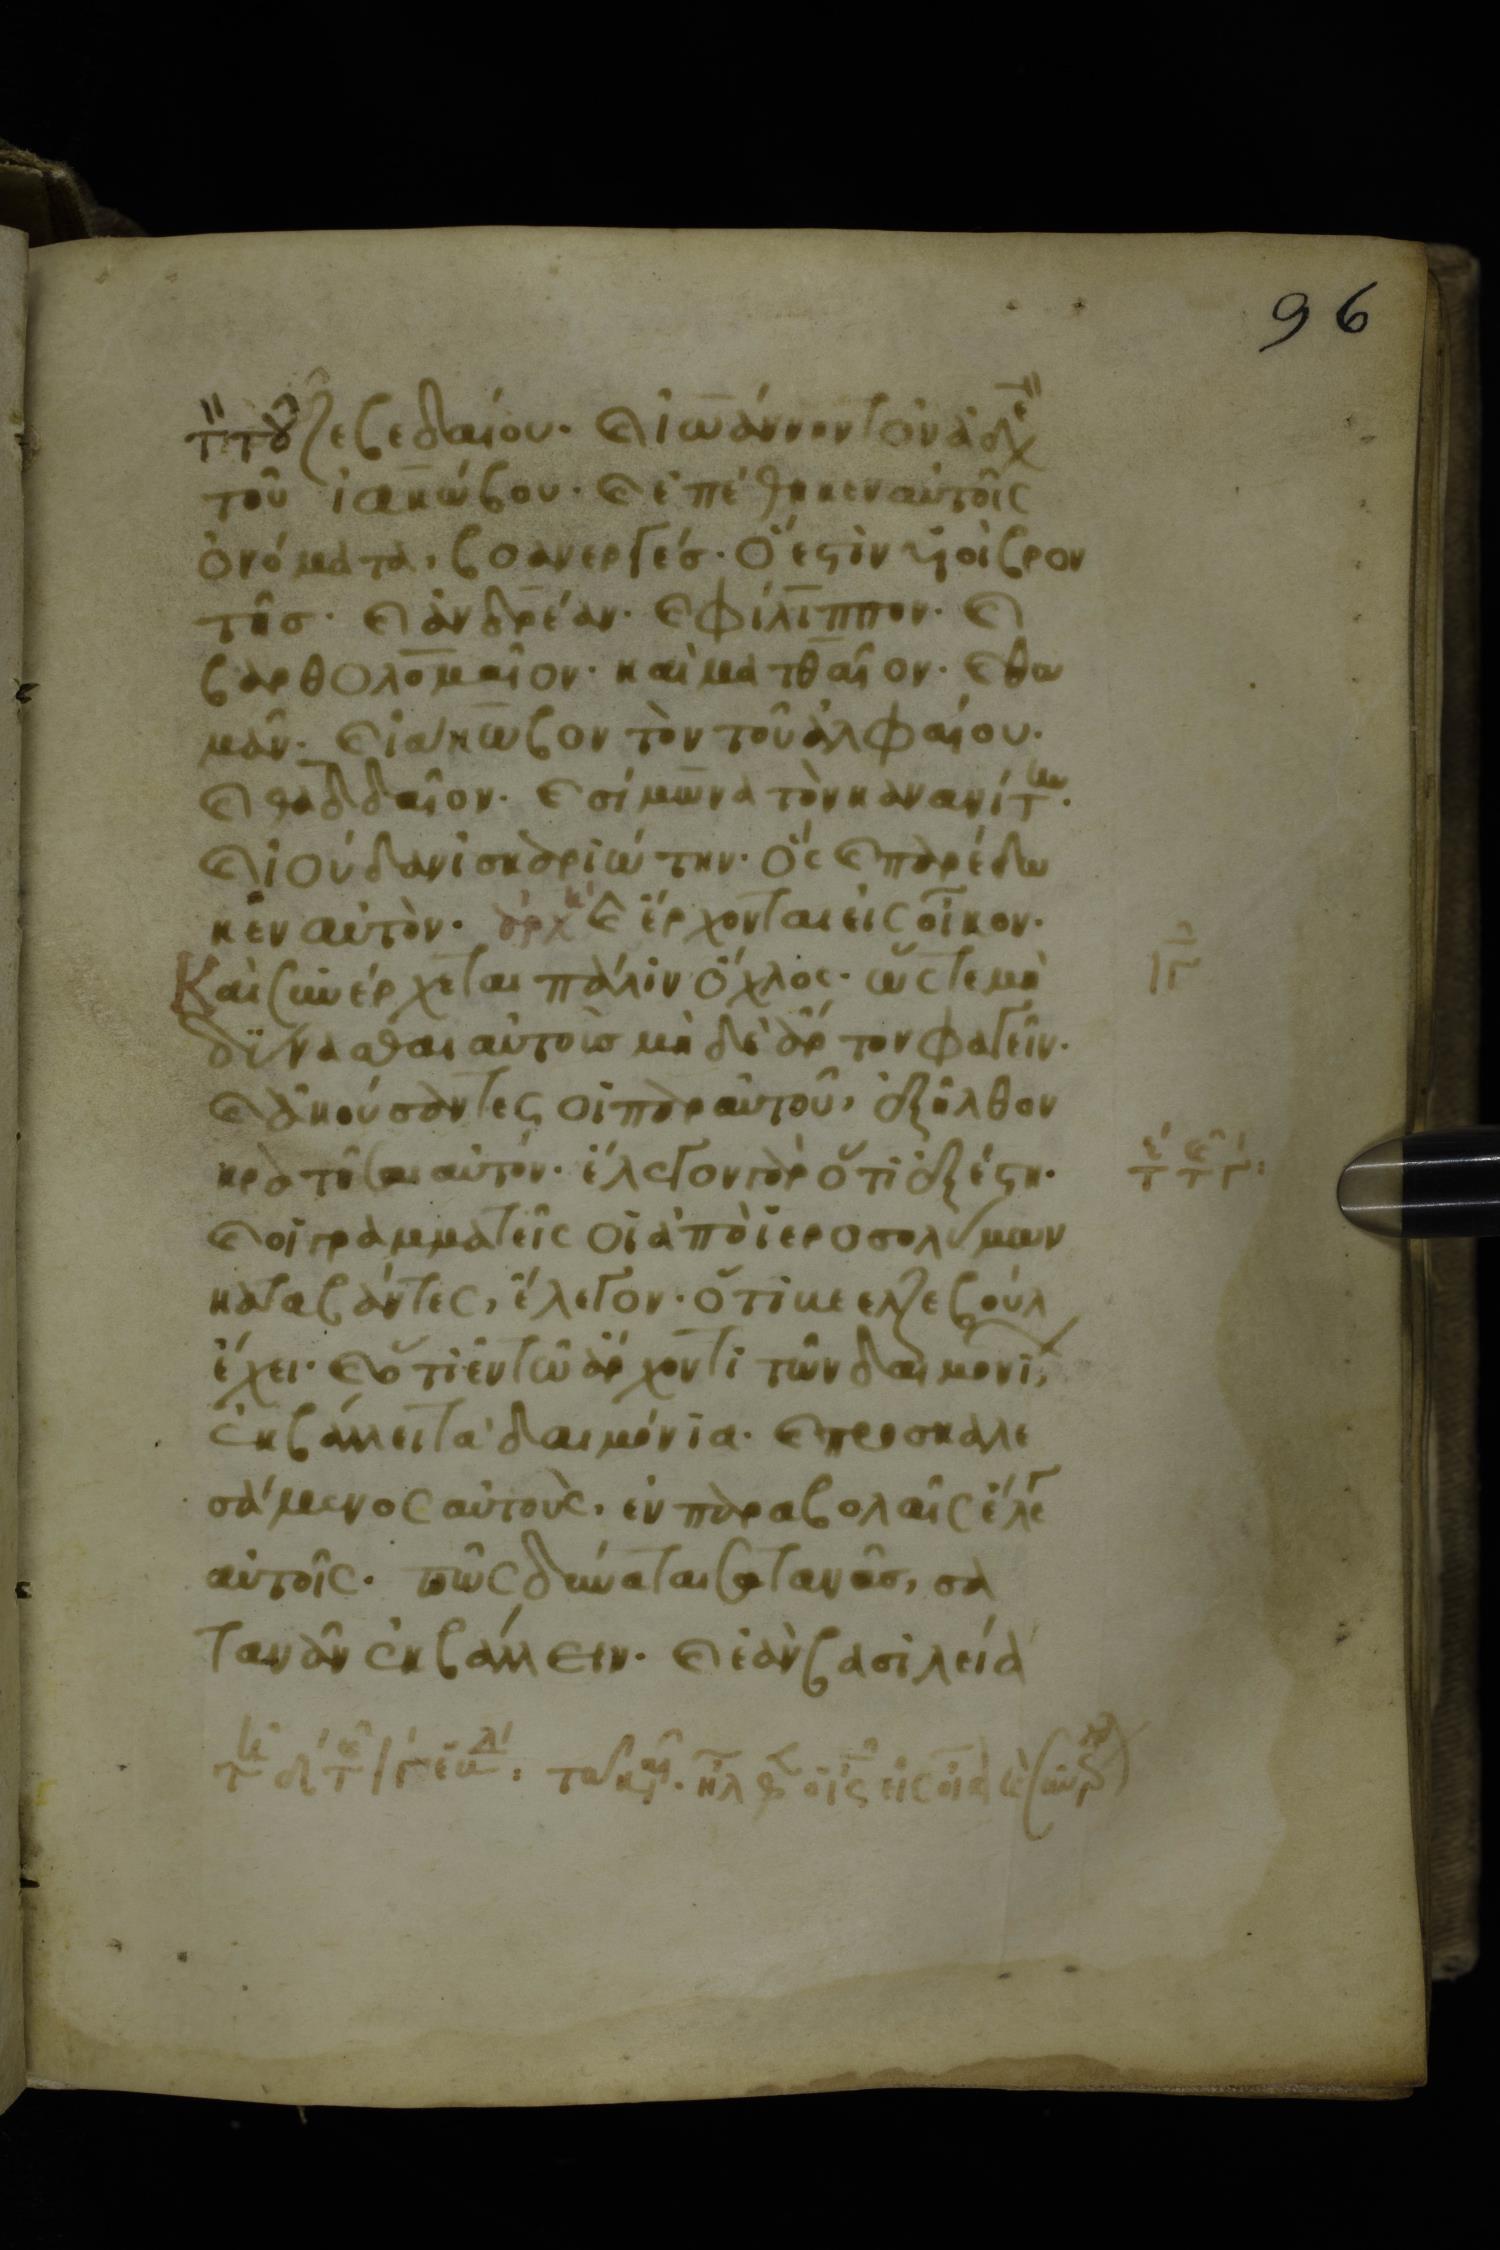 96
τ̀ τοῦ ζεβεδαίου· κ ἰωάννην τὸν ἀδλ
τοῦ ἰακώβου· κ ἐπέθηκεν αὐτοῖς
ὀνόματα, βοανεργές· ὅ ἐστιν υἱοὶ βρον
τῆσ· κ ἀνδρέαν· κ φίλιππον· κ
βαρθολομαῖον· καὶ ματθαῖον· κ θω
μᾶν· κ ἰάκωβον τὸν τοῦ ἀλφαίου·
κ θαδδαῖον· κ σίμωνα τὸν κανανίτην·
κ ἰούδαν ἰσκαριώτην· ὅς κ παρέδω
κεν αὐτὸν· ἀρχ κ ἔρχονται εἰς οἶκον·
Καὶ συνέρχεται πάλιν ὄχλος· ὥστε μὴ
δύνασθαι αὐτοὺσ μὴ δὲ ἄρτον φαγεῖν·
κ ἀκούσαντες οἱ παρ αὐτοῦ, ἐξῆλθον
κρατῆσαι αὐτόν· ἔλεγον γὰρ ὅτι ἐξέστη·
κ οἱ γραμματεῖς οἱ ἀπὸ ἱεροσολύμων
καταβάντες, ἔλεγον· ὅτι βεελζεβοὺλ
ἔχει· κ ὅτι ἐν τῶ ἄρχοντι τῶν δαιμονί,
ἐκβάλλει τὰ δαιμόνια· κ προσκαλε
σάμενος αὐτοὺς, ἐν παραβολαῖς ἔλεγ
αὐτοῖς· πῶς δύναται σατανᾶσ, σα
τανᾶν ἐκβάλλειν· κ ἐὰν βασιλεία